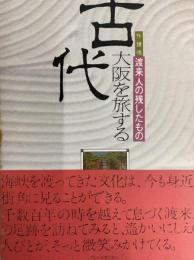 古代
大阪を旅する
渡来人の残したもの
海峡を渡ってきた文化は、今も身近
街角に見ることができる。
千数百年の時を越えて息づく渡来
の足跡を訪ねてみると、遥かいにしえ
人びとが、そっと微笑みかけてくる。